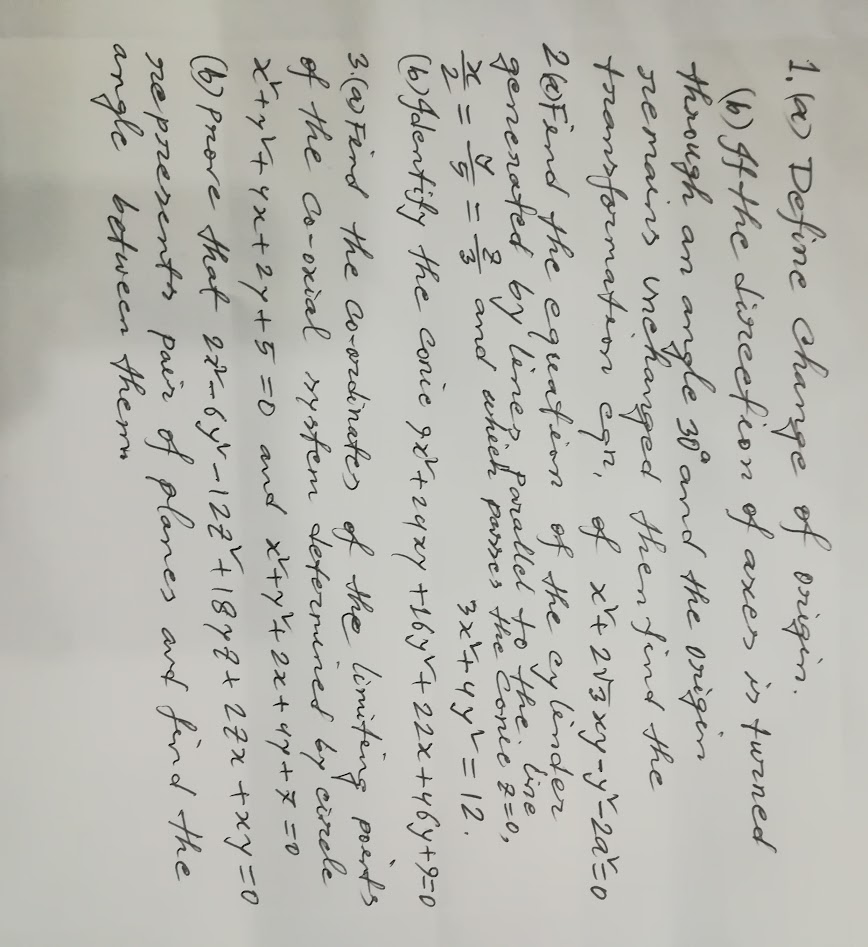 1. (a) Define change of origin.
(b) If the direction of axes is turned
through an angle 30° and the origin
remains unchanged then find the
transformation eqn. of x²+2√3xy-y²-2a²=0
2(a) Find the equation of the cylinder
generated by lines parallel to the line
x/2 = y/5 = z/3 and which passes the conic z=0,
3x²+4y²=12.
(b) Identify the conic 9x²+24xy+16y²+22x+46y+9=0
3.(a) Find the co-ordinates of the limiting points
of the co-oxial system determined by circle
x²+y²+4x+2y+5=0 and x²+y²+2x+4y+7=0
(b) Prove that 2x²-6y²-12z²+18yz+2zx+xy=0
represents pair of planes and find the
angle between them.